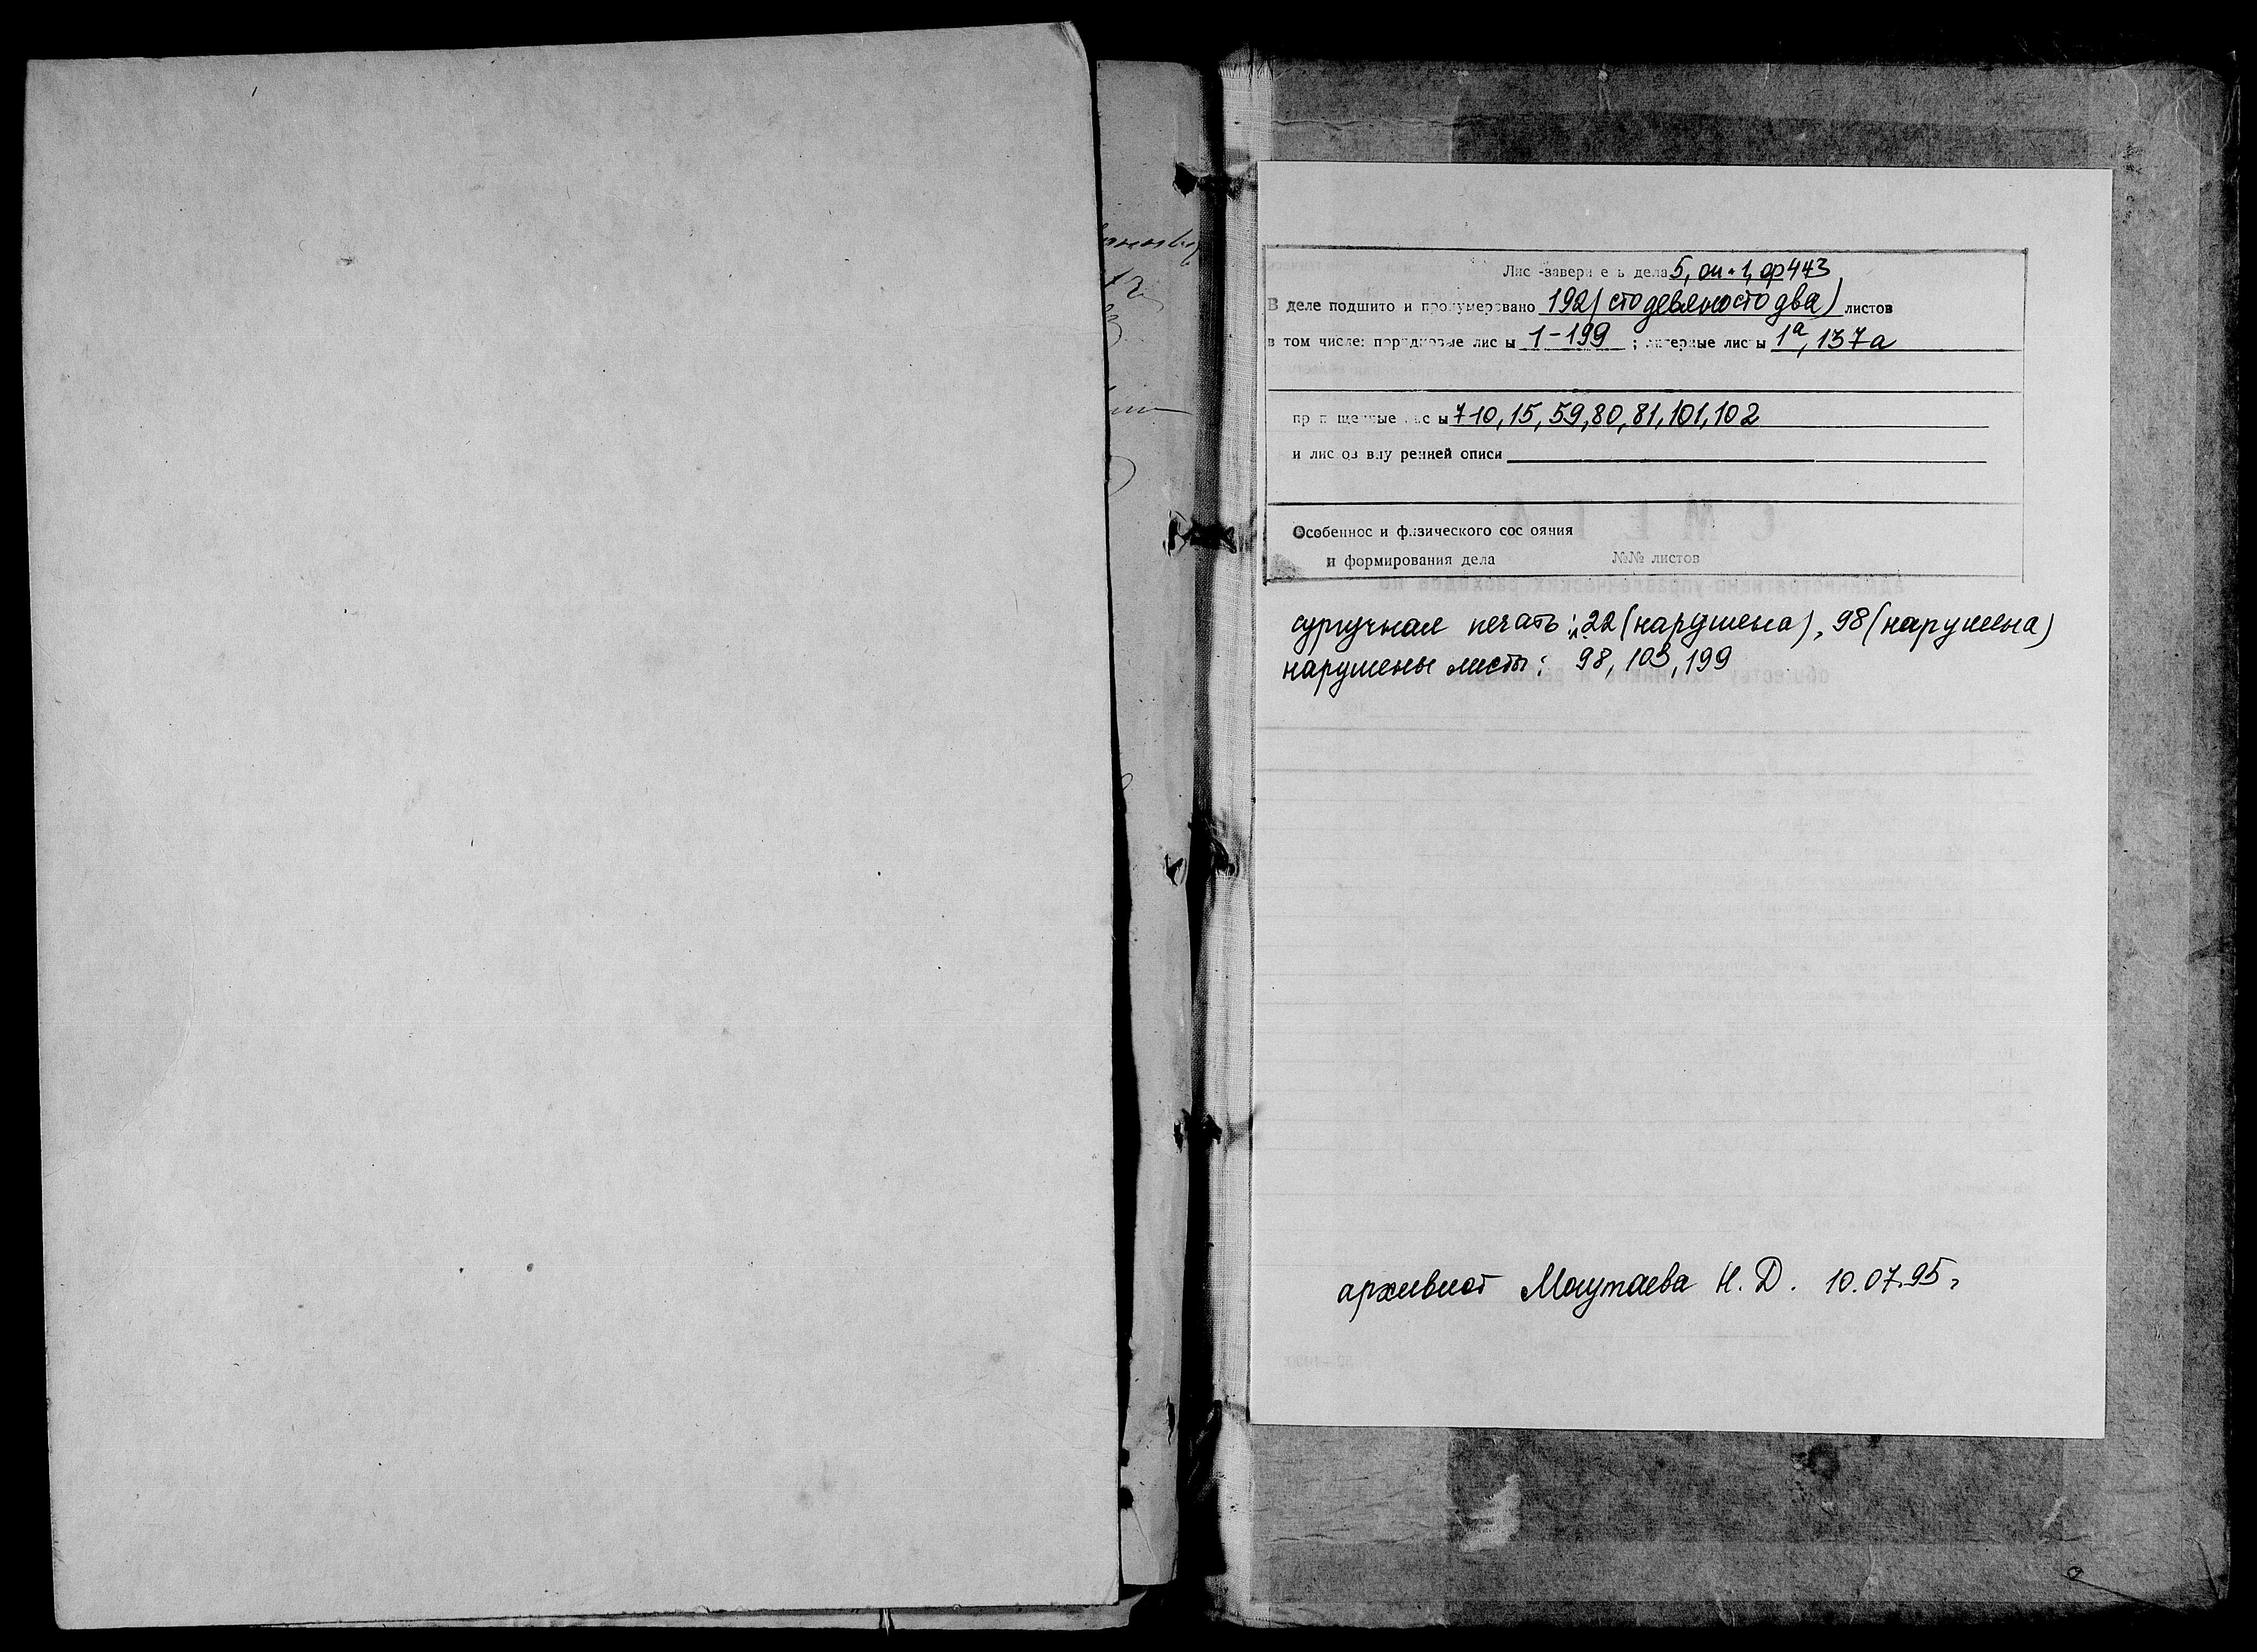 Лист-заверитель дела 5, оп. 1, ф 443
В деле подшито и пронумеровано 192 (сто девяносто два) листов
в том числе: порядковые листы 1-199 ; литерные листы 1а, 137а
пропущенные листы 7-10, 15, 59, 80, 81, 101, 102
и листов внутренней описи
Особенности физического состояния
и формирования дела №№ листов
сургучная печать: л. 22 (нарушена), 98 (нарушена)
нарушены листы: 98, 103, 199
архивист Н. Д. 10.07.95г